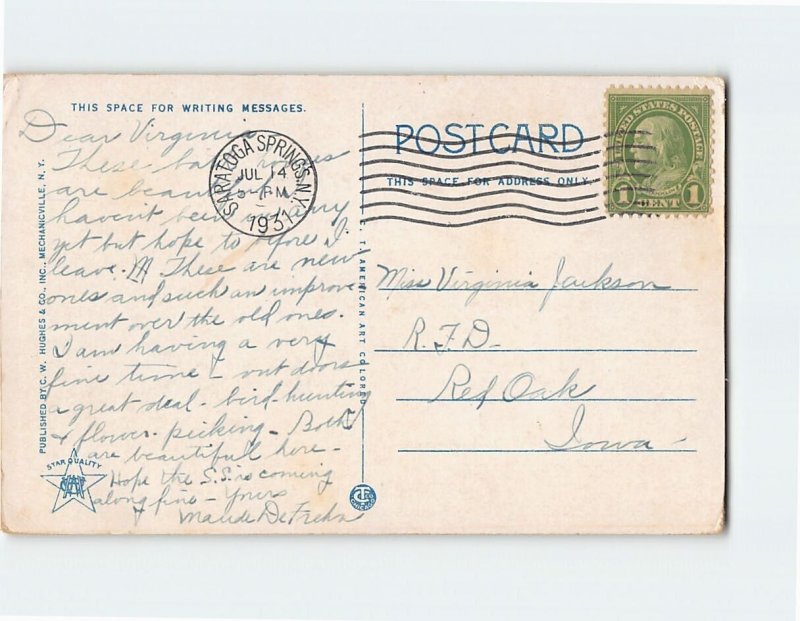 THIS SPACE FOR WRITING MESSAGES.
Dear Virginia
These bath houses
are beautiful
haven't been in any
yet but hope to before I
leave. These are new
ones and such an improve
ment over the old ones.
I am having a very
fine time - out doors
a great deal - bird-hunting
& flower-picking - Both
are beautiful here -
Hope the S.S. is coming
along fine - Yours
Maude
SARATOGA SPRINGS, N.Y.
JUL 14
5-PM
1931
POST CARD
THIS SPACE FOR ADDRESS ONLY.
UNITED STATES POSTAGE
1 CENT 1
Miss Virginia Jackson
R.F.D.
Red Oak
Iowa
PUBLISHED BY C. W. HUGHES & CO., INC., MECHANICVILLE, N. Y.
C. T. AMERICAN ART COLORED
STAR QUALITY
CHICAGO